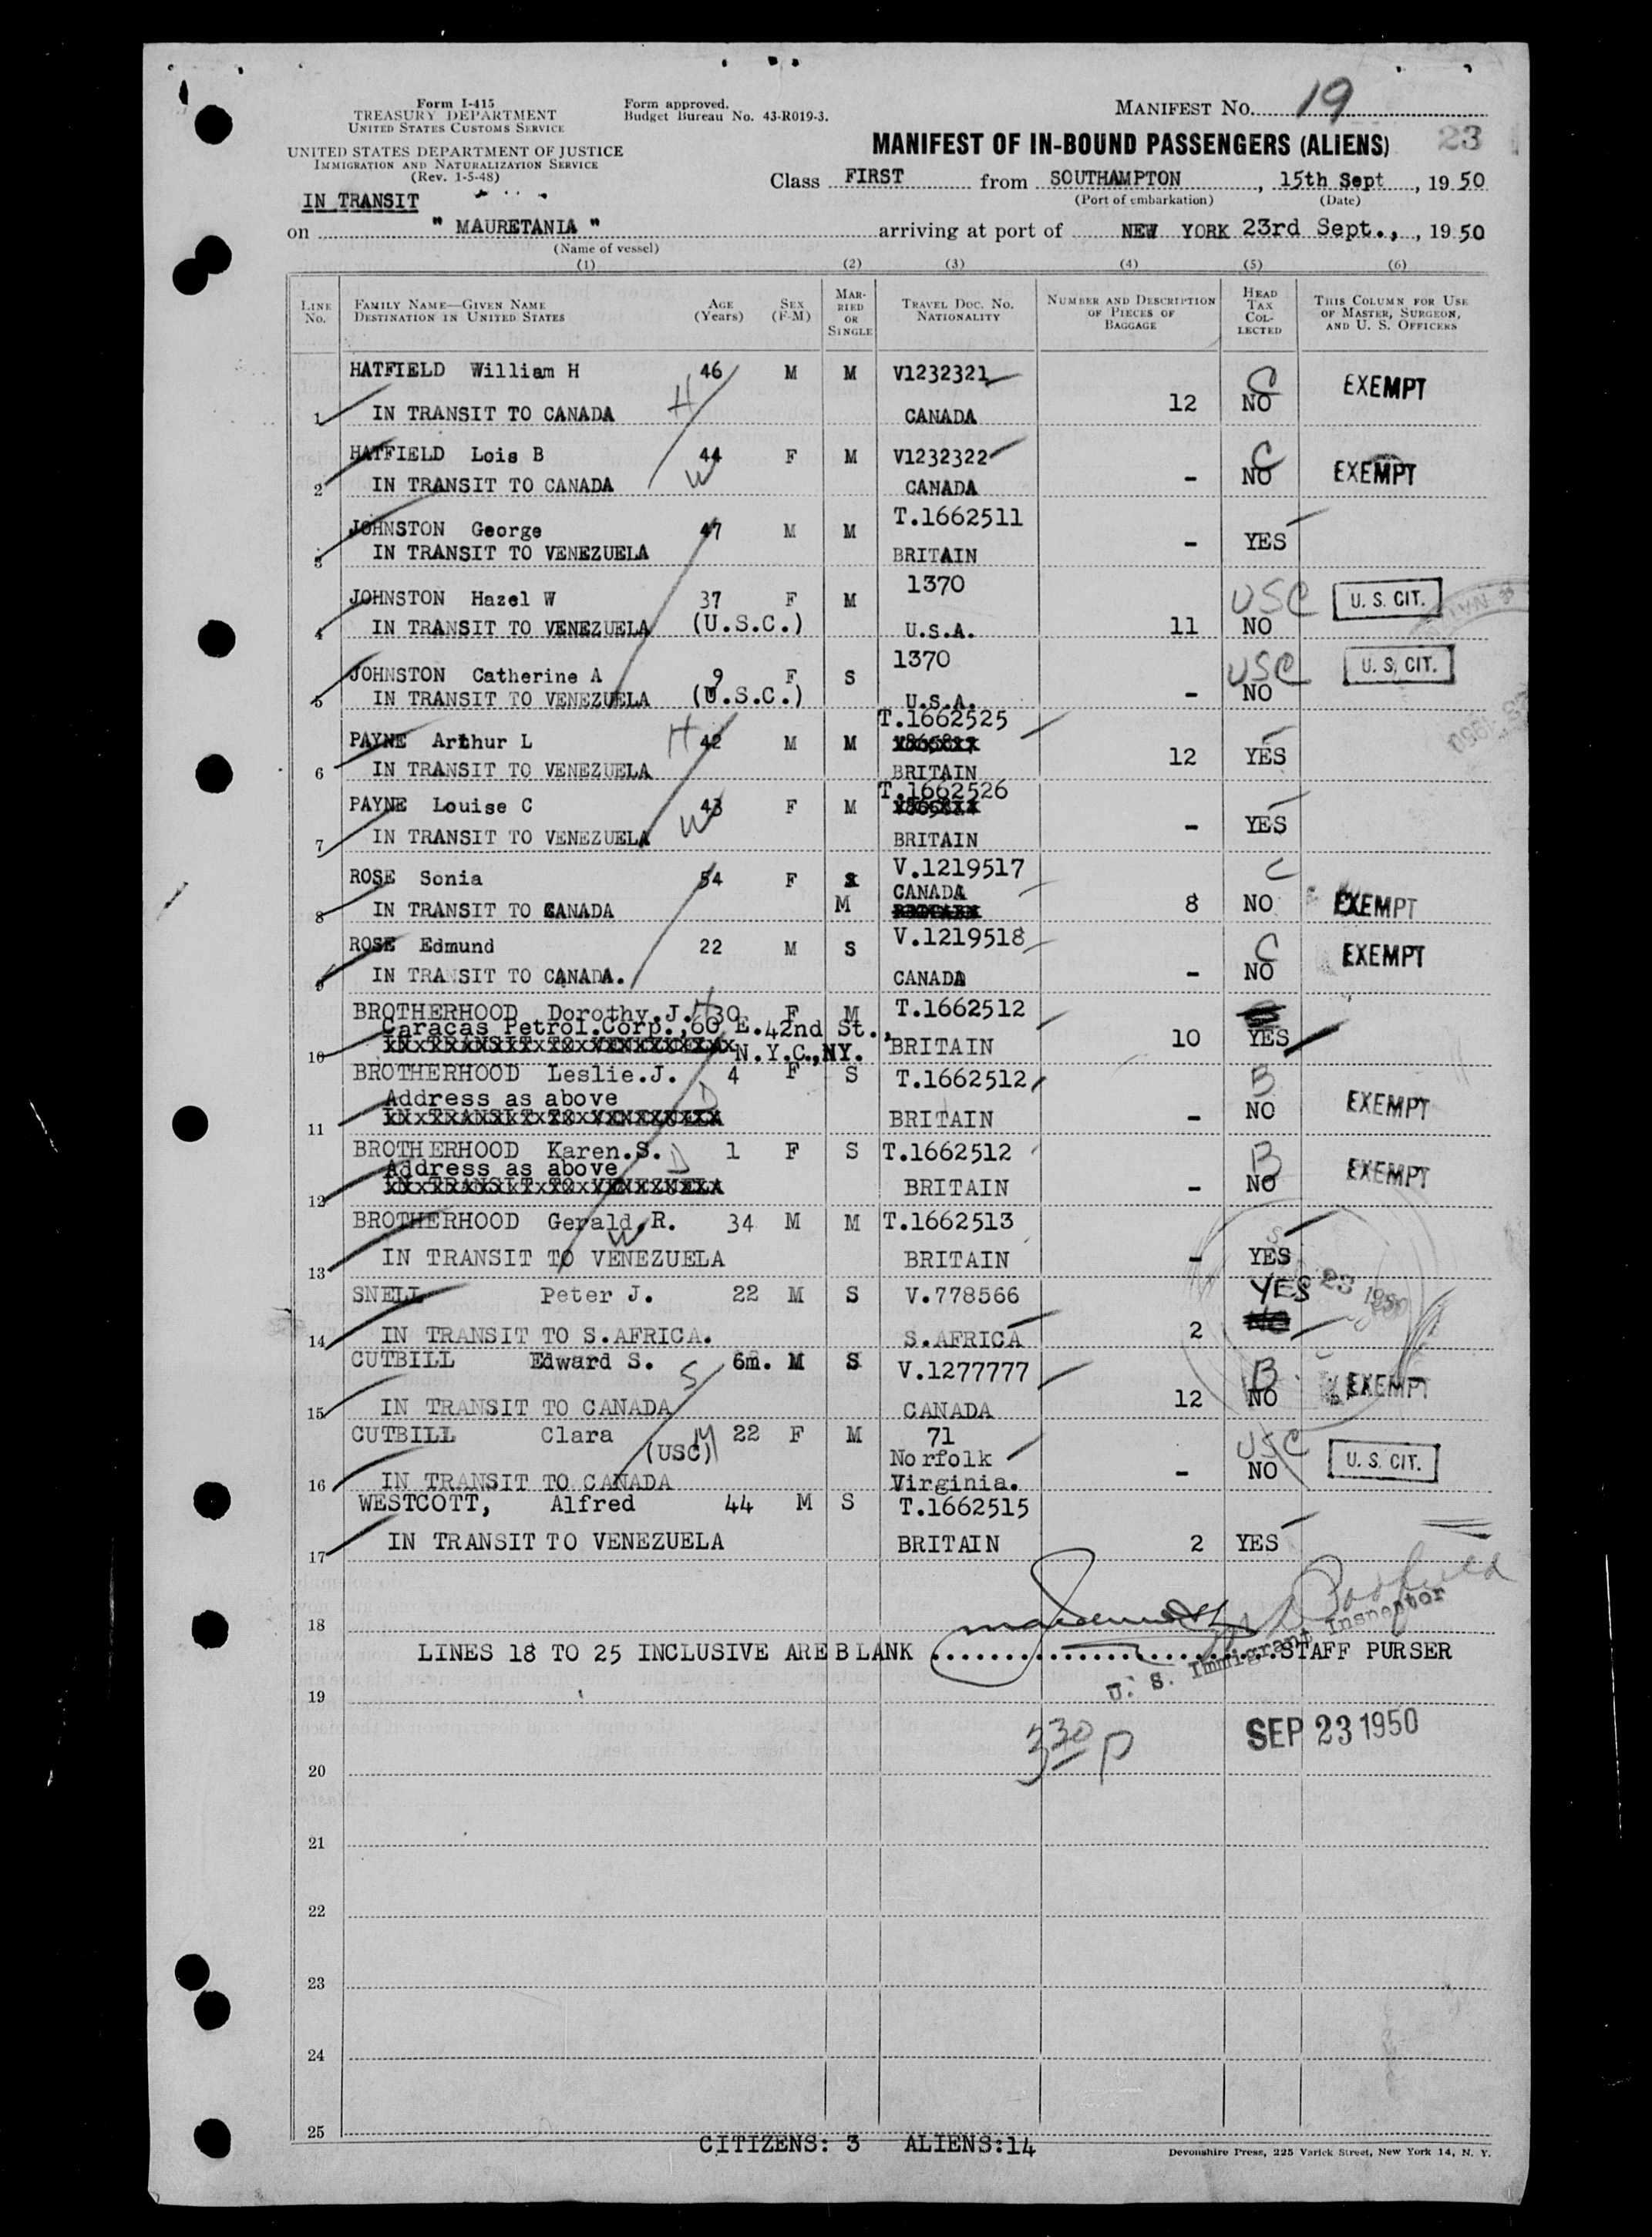 Form I-415
TREASURY DEPARTMENT
UNITED STATES CUSTOMS SERVICE
Form approved.
Budget Bureau No. 43-R019-3.
MANIFEST NO. 19
UNITED STATES DEPARTMENT OF JUSTICE
IMMIGRATION AND NATURALIZATION SERVICE
(Rev. 1-5-48)
MANIFEST OF IN-BOUND PASSENGERS (ALIENS) 23
Class FIRST from SOUTHAMPTON, 15th Sept, 1950
(Port of embarkation) (Date)
IN TRANSIT
on " MAURETANIA " arriving at port of NEW YORK 23rd Sept., , 1950
(Name of vessel)
(1) (2) (3) (4) (5) (6)
LINE No. FAMILY NAME—GIVEN NAME DESTINATION IN UNITED STATES AGE (Years) SEX (F-M) MARRIED OR SINGLE TRAVEL DOC. NO. NATIONALITY NUMBER AND DESCRIPTION OF PIECES OF BAGGAGE HEAD TAX COLLECTED THIS COLUMN FOR USE OF MASTER, SURGEON, AND U. S. OFFICERS
HATFIELD William H 46 M M V1232321 C EXEMPT
1 IN TRANSIT TO CANADA H CANADA 12 NO
HATFIELD Lois B 44 F M V1232322 C EXEMPT
2 IN TRANSIT TO CANADA W CANADA - NO
JOHNSTON George 47 M M T.1662511
3 IN TRANSIT TO VENEZUELA BRITAIN - YES
JOHNSTON Hazel W 37 F M 1370 USC U. S. CIT.
4 IN TRANSIT TO VENEZUELA (U.S.C.) U.S.A. 11 NO
JOHNSTON Catherine A 9 F S 1370 USC U. S. CIT.
5 IN TRANSIT TO VENEZUELA (U.S.C.) U.S.A. - NO
PAYNE Arthur L H 42 M M T.1662525
6 IN TRANSIT TO VENEZUELA BRITAIN 12 YES
PAYNE Louise C 43 F M T.1662526
7 IN TRANSIT TO VENEZUELA W BRITAIN - YES
ROSE Sonia 54 F M V.1219517 C
8 IN TRANSIT TO CANADA CANADA 8 NO EXEMPT
ROSE Edmund 22 M S V.1219518 C EXEMPT
9 IN TRANSIT TO CANADA. CANADA - NO
BROTHERHOOD Dorothy.J. H 30 F M T.1662512
Caracas Petrol.Corp.,60 E.42nd St.,
10 N.Y.C.,NY. BRITAIN 10 YES
BROTHERHOOD Leslie.J. 4 F S T.1662512 B EXEMPT
Address as above D
11 BRITAIN - NO
BROTHERHOOD Karen.S. D 1 F S T.1662512 B EXEMPT
Address as above
12 BRITAIN - NO
BROTHERHOOD Gerald,R. 34 M M T.1662513
13 IN TRANSIT TO VENEZUELA W BRITAIN - YES
SNELL Peter J. 22 M S V.778566 YES
14 IN TRANSIT TO S.AFRICA. S.AFRICA 2
CUTBILL Edward S. S 6m. M S V.1277777 B EXEMPT
15 IN TRANSIT TO CANADA CANADA 12 NO
CUTBILL Clara (USC) M 22 F M 71 Norfolk Virginia. USC U. S. CIT.
16 IN TRANSIT TO CANADA - NO
WESTCOTT, Alfred 44 M S T.1662515
17 IN TRANSIT TO VENEZUELA BRITAIN 2 YES
18
LINES 18 TO 25 INCLUSIVE ARE BLANK STAFF PURSER
U. S. Immigrant Inspector
19
330 P SEP 23 1950
20
21
22
23
24
25
CITIZENS: 3 ALIENS:14
Devonshire Press, 225 Varick Street, New York 14, N. Y.